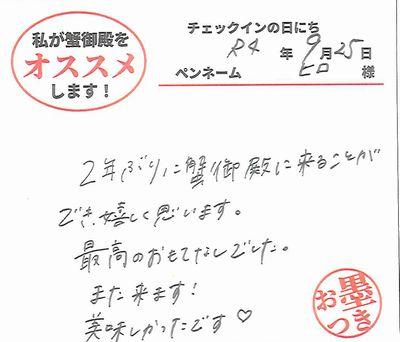 私が蟹御殿を
オススメ
します!
チェックインの日にち
R4 年 9月25日
ペンネーム ヒロ 様
2年ぶりに蟹御殿に来ることが
でき、嬉しく思います。
最高のおもてなしでした。
また来ます!
美味しかったです♡
お墨つき